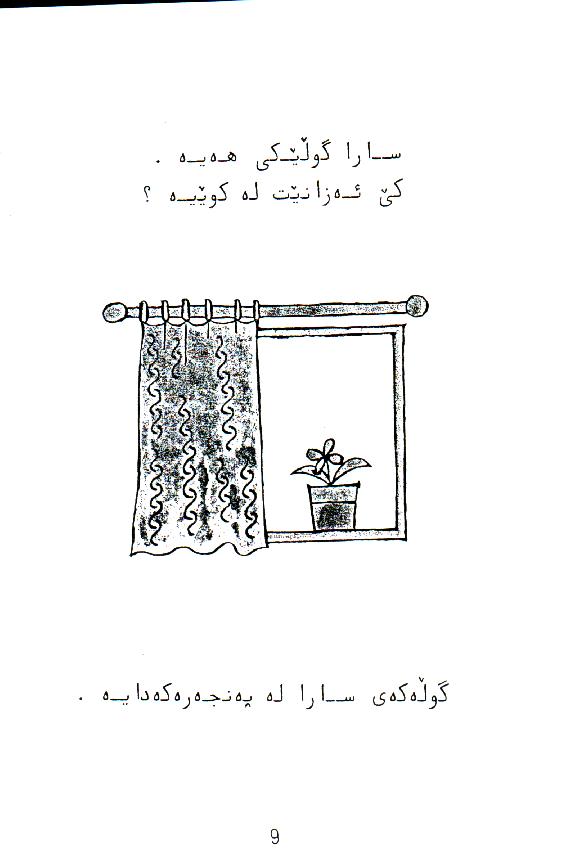 سارا گوڵێکی هەیە .
کێ ئەزانێت لە کوێیە ؟
گوڵەکەی سارا لە پەنجەرەکەدایە .
9